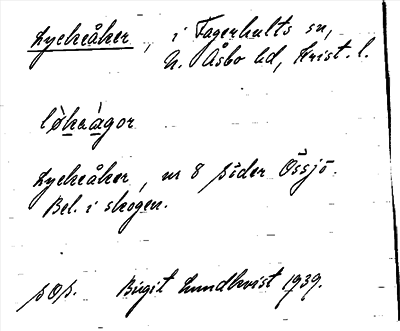 Lyckeåker, i Fagerhults sn,
N. Åsbo hd, Krist. l.
Lyckeåker, nr 8 söder Össjö.
Bel. i skogen.
Birgit Lundkvist 1939.